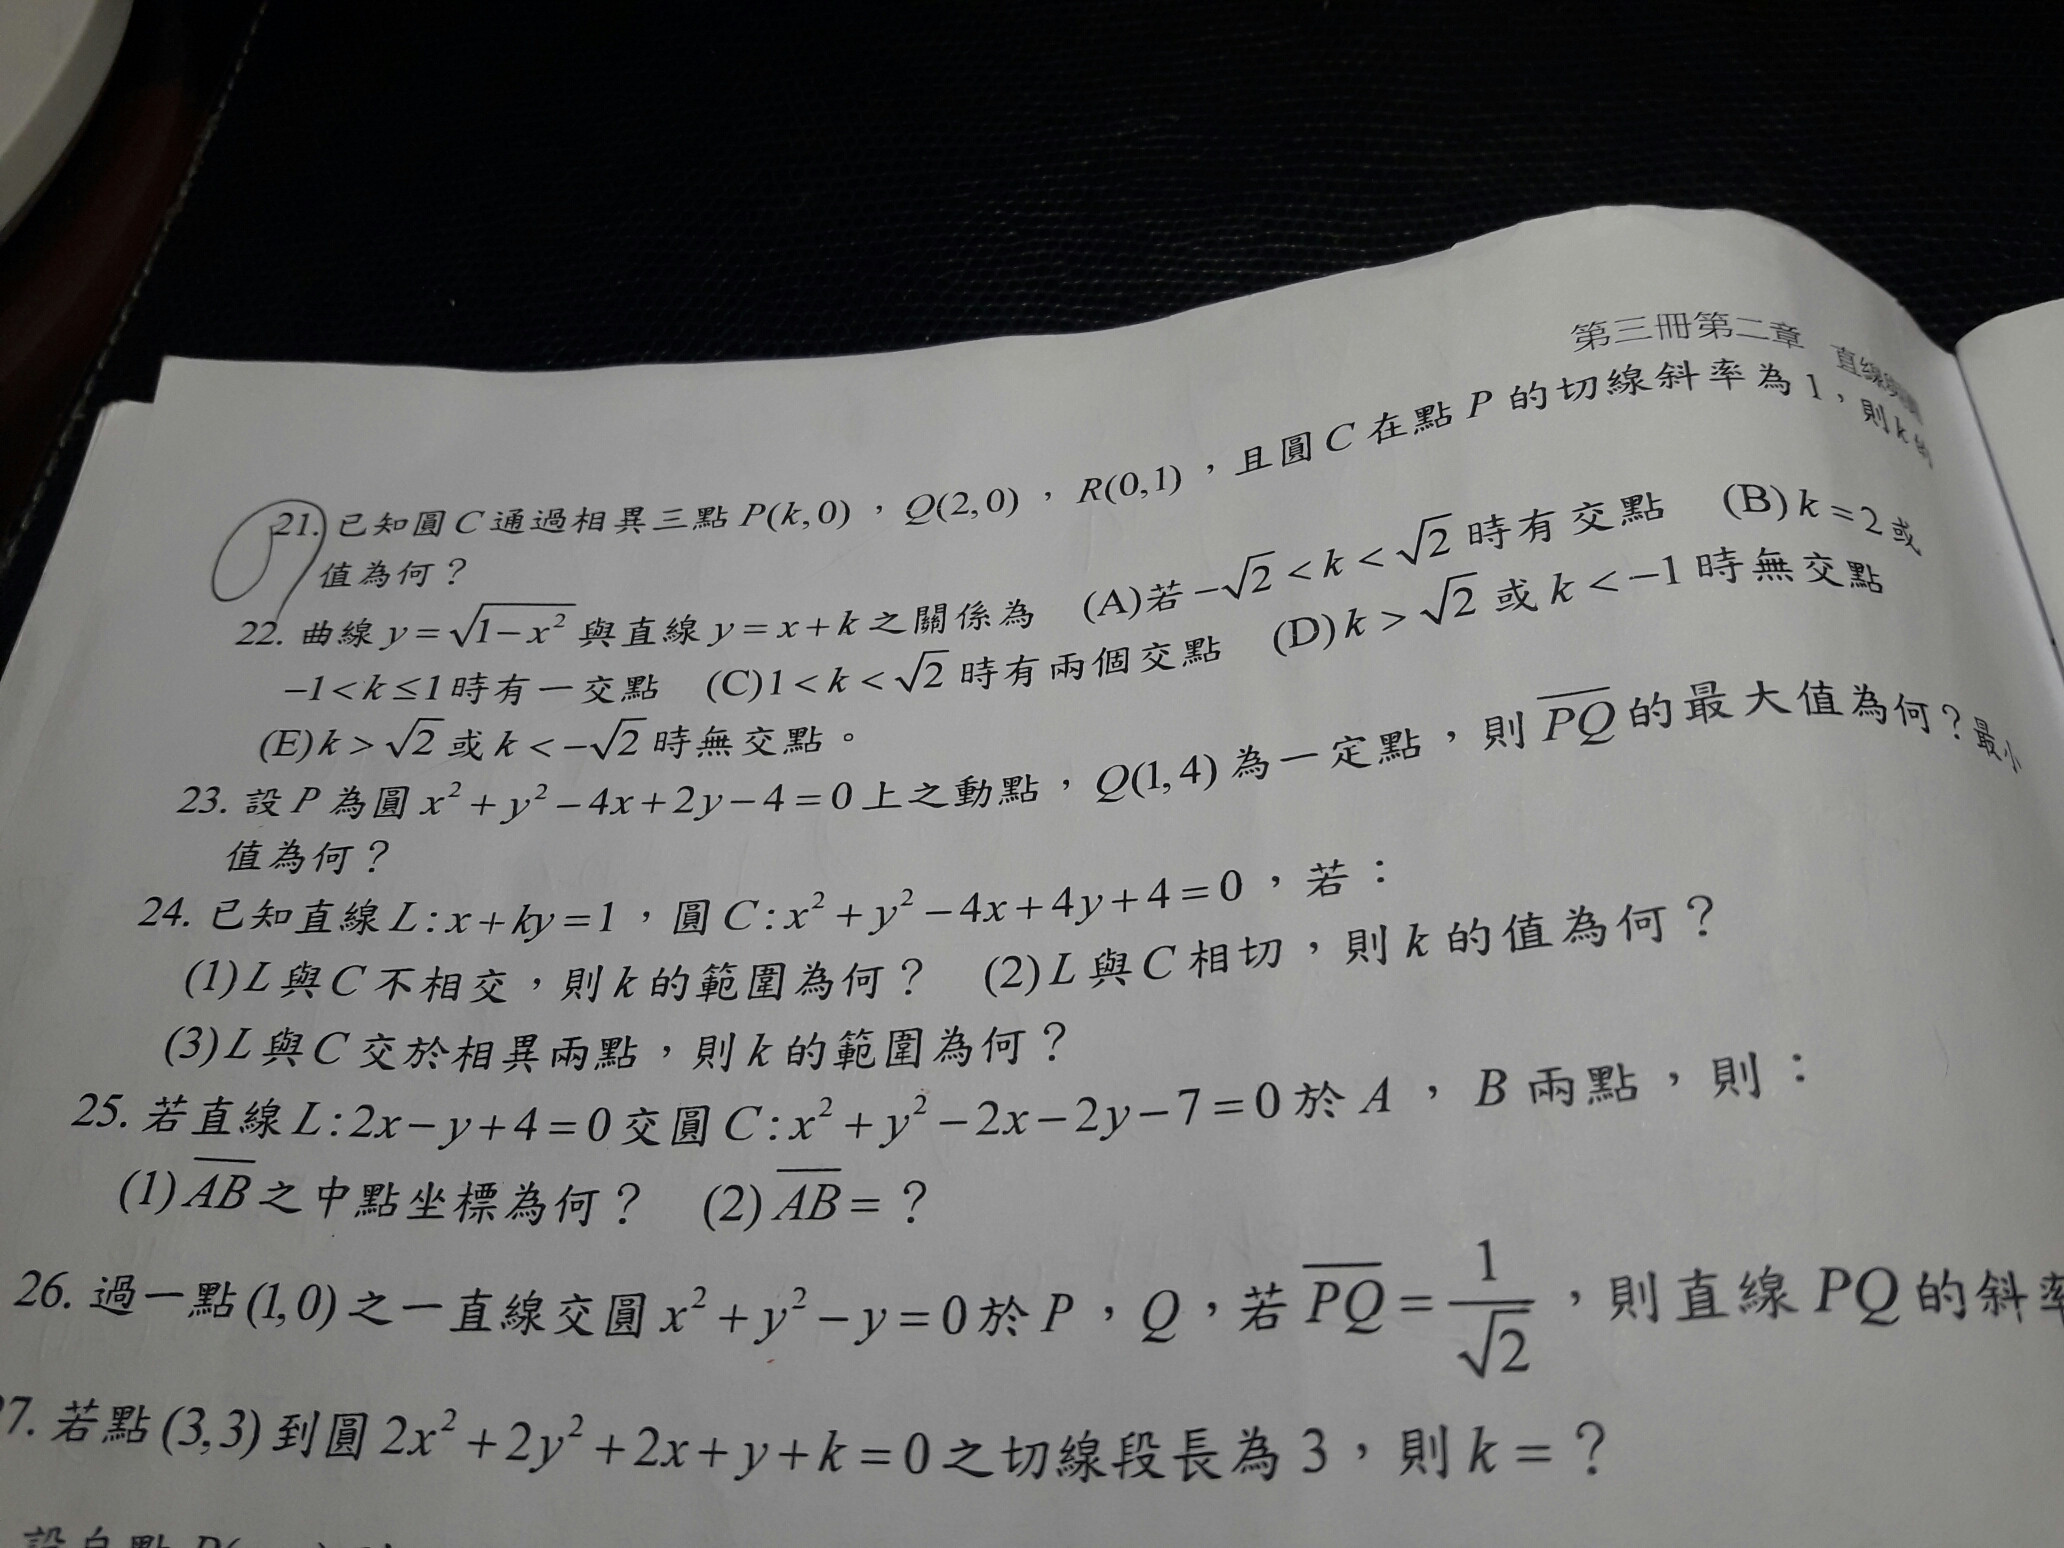 第三冊第二章
21. 已知圓C通過相異三點P(k,0)，Q(2,0)，R(0,1)，且圓C在點P的切線斜率為1，則k的
值為何？
22. 曲線y=√(1-x²)與直線y=x+k之關係為 (A)若-√2<k<√2時有交點 (B)k=2或
-1<k≤1時有一交點 (C)1<k<√2時有兩個交點 (D)k>√2或k<-1時無交點
(E)k>√2或k<-√2時無交點。
23. 設P為圓x²+y²-4x+2y-4=0上之動點，Q(1,4)為一定點，則PQ的最大值為何？最小
值為何？
24. 已知直線L:x+ky=1，圓C:x²+y²-4x+4y+4=0，若：
(1)L與C不相交，則k的範圍為何？ (2)L與C相切，則k的值為何？
(3)L與C交於相異兩點，則k的範圍為何？
25. 若直線L:2x-y+4=0交圓C:x²+y²-2x-2y-7=0於A，B兩點，則：
(1)AB之中點坐標為何？ (2)AB=？
26. 過一點(1,0)之一直線交圓x²+y²-y=0於P，Q，若PQ=1/√2，則直線PQ的斜率
7. 若點(3,3)到圓2x²+2y²+2x+y+k=0之切線段長為3，則k=？